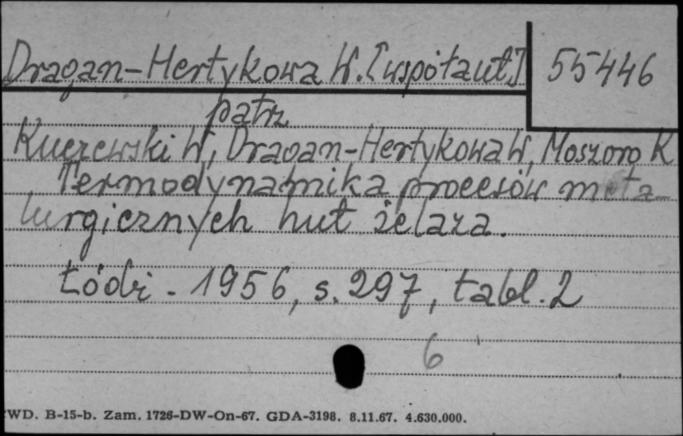 Dragan-Hertykowa W. [współaut] 55446
patrz
Kuczewski W, Dragan-Hertykowa W, Moszoro K
Termodynamika procesów meta-
lurgicznych hut żelaza.
Łódź - 1956, s. 297, tabl. 2
6
WD. B-15-b. Zam. 1726-DW-On-67. GDA-3198. 8.11.67. 4.630.000.